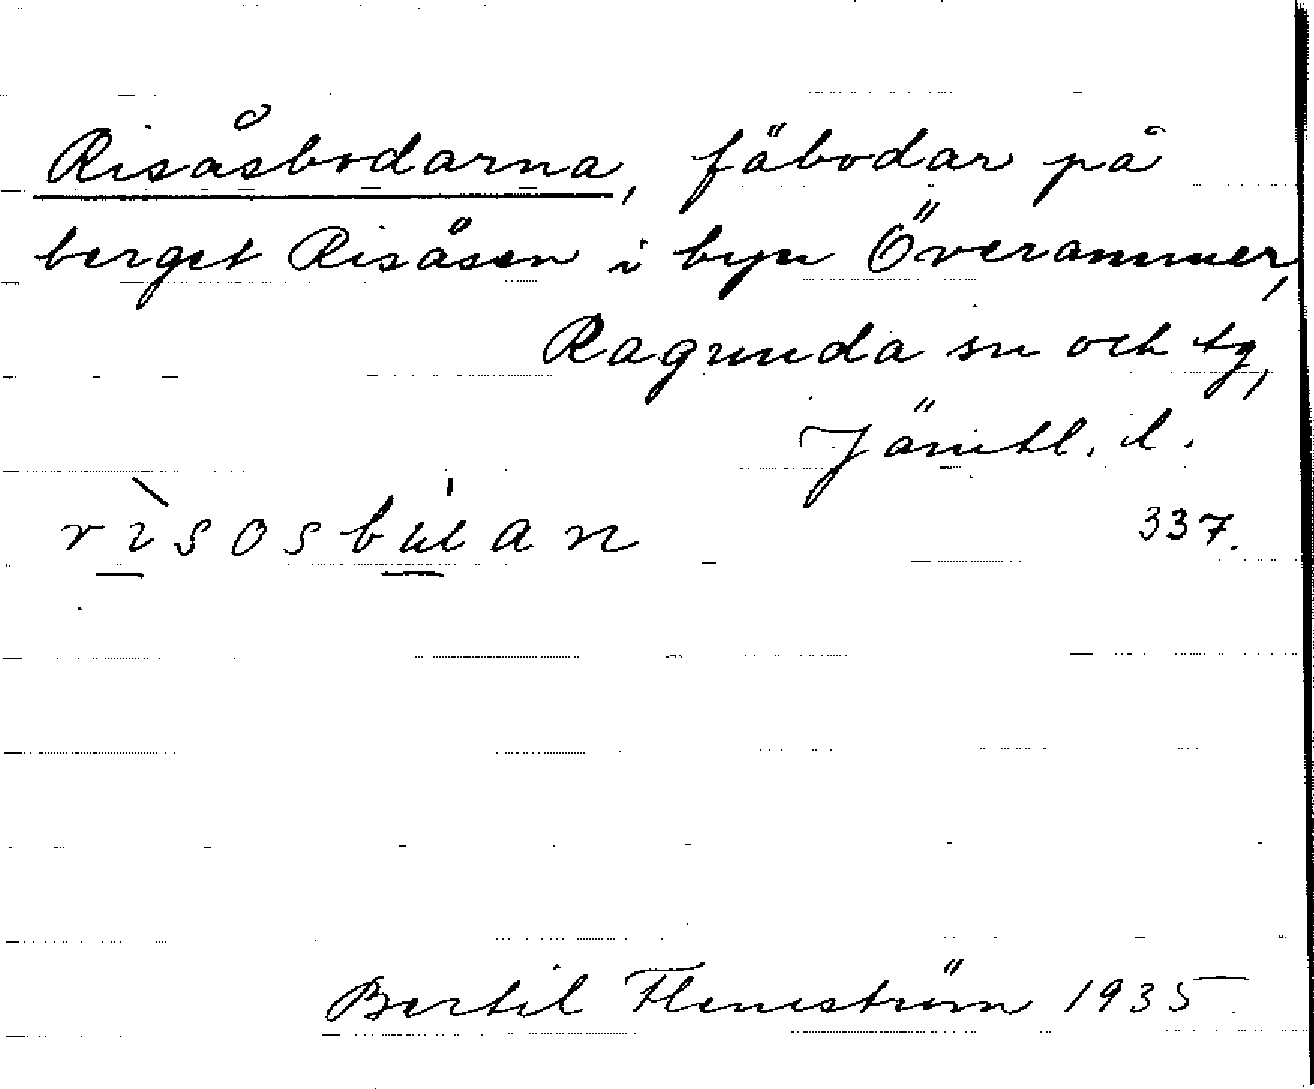 Risåsbodarna, fäbodar på
berget Risåsen i byn Överammer,
Ragunda sn och tg,
Jämtl. l.
337.
Bertil Flemström 1935